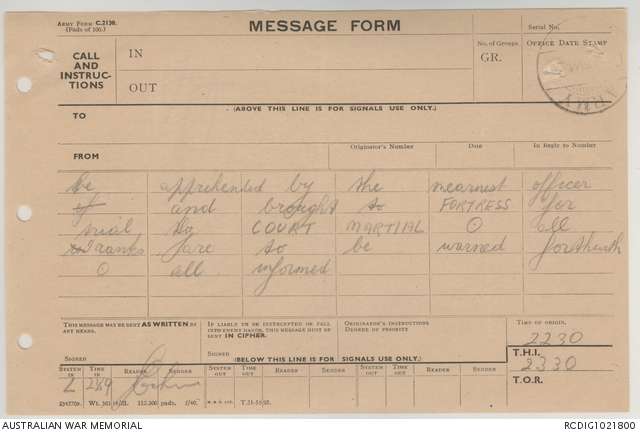 ARMY FORM C.2128.
(Pads of 100.)
MESSAGE FORM
Serial No.
CALL
AND
INSTRUC-
TIONS
IN
OUT
No. of Groups.
GR.
OFFICE DATE STAMP
ARMY
(ABOVE THIS LINE IS FOR SIGNALS USE ONLY.)
TO
FROM
Originator's Number
Date
In Reply to Number
be apprehended by the nearest officer
and brought to FORTRESS for
trial by COURT MARTIAL O all
ranks are to be warned forthwith
O all informed
THIS MESSAGE MAY BE SENT AS WRITTEN BY
ANY MEANS.
SIGNED
IF LIABLE TO BE INTERCEPTED OR FALL
INTO ENEMY HANDS, THIS MESSAGE MUST BE
SENT IN CIPHER.
SIGNED
ORIGINATOR'S INSTRUCTIONS
DEGREE OF PRIORITY
TIME OF ORIGIN.
2230
T.H.I.
2330
T.O.R.
(BELOW THIS LINE IS FOR SIGNALS USE ONLY.)
SYSTEM IN TIME IN READER SENDER SYSTEM OUT TIME OUT READER SENDER SYSTEM OUT TIME OUT READER SENDER
L 2349
AUSTRALIAN WAR MEMORIAL
RCDIG1021800